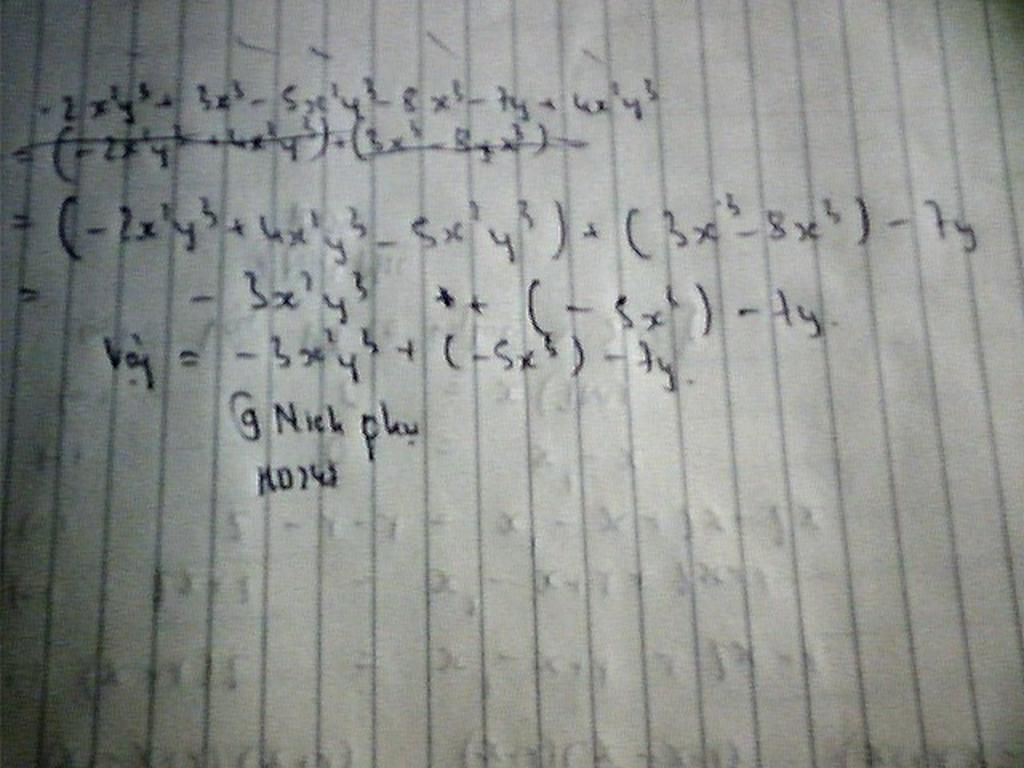 -2x²y³ + 3x³ - 5x²y³ - 8x³ - 7y + 4x²y³
= (-2x²y³ + 4x²y³) + (3x³ - 8x³) -
= (-2x²y³ + 4x²y³ - 5x²y³) + (3x³ - 8x³) - 7y
= - 3x²y³ + + (-5x³) - 7y.
Vậy = -3x²y³ + (-5x³) - 7y.
Nick phụ